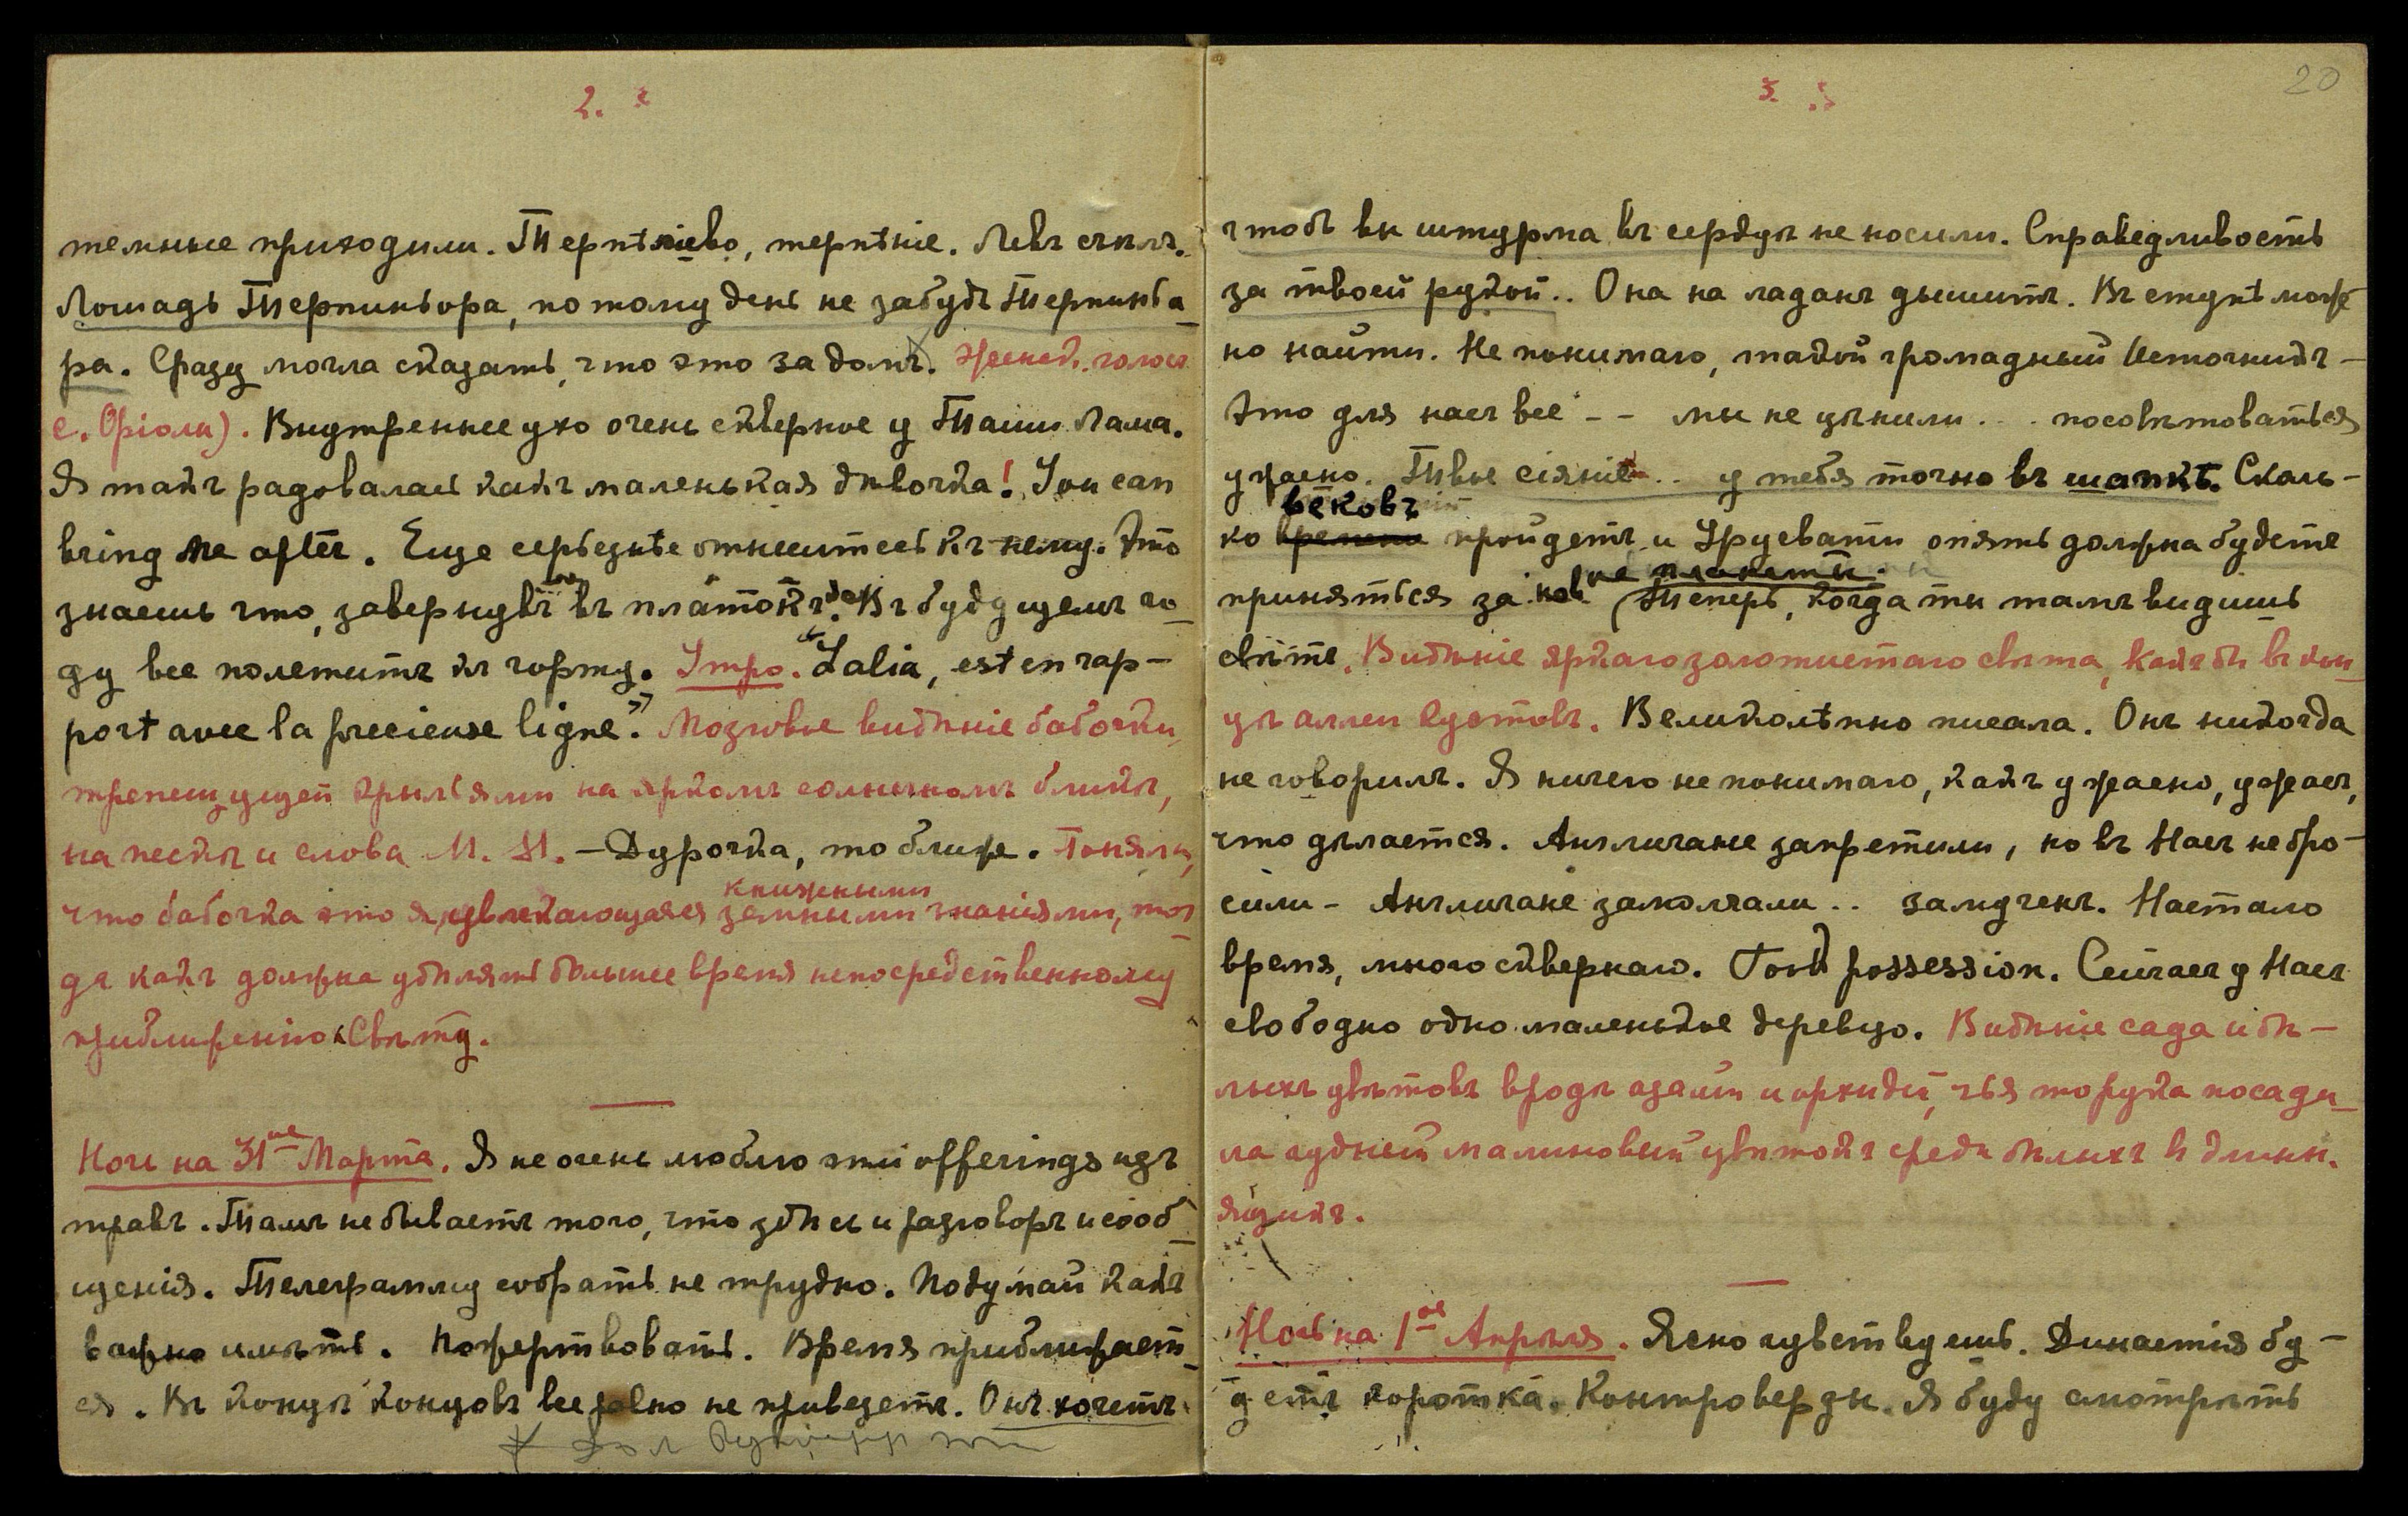 2.
темные приходили. Терпѣніево, терпѣніе. Левъ силъ.
Лошадь Терпиньора, по тому день не забудь Терпиньо-
ра. Сразу могла сказать, что это за домъ. Женск. голосъ
с. Оріоли). Внутреннее ухо очень скверное у Таши Лама.
Я такъ радовалась какъ маленькая дѣвочка! You can
bring me after. Еще серьезнѣе отнеситесь къ нему. Это
знаешь что, завернувъ въ платокъ. Въ будущемъ го-
ду все полетитъ къ чорту. Утро. "Lalia, est en rap-
port avec la precieuse ligne." Мозговое видѣніе бабочки,
трепещущей крыльями на яркомъ солнечномъ бликѣ,
на пескѣ и слова М. М. – Дурочка, то ближе. Поняла,
что бабочка это я, увлекающаяся земными знаніями, тог-
книжными
да какъ должна удѣлять больше время непосредственному
приближенію къ Свѣту.
Ночь на 31ое Марта. Я не очень люблю эти offerings изъ
травъ. Тамъ не бываетъ того, что здѣсь и разговоръ и сооб-
щенія. Телеграмму собрать не трудно. Подумай какъ
важно имѣть. Пожертвовать. Время приближает-
ся. Въ концѣ концовъ все равно не привезетъ. Онъ хочетъ
3. 20
чтобъ вы штурма въ сердцѣ не носили. Справедливость
за твоей рукой.. Она на ладанъ дышитъ. Въ ступѣ мож-
но найти. Не понимаю, такой громадный Источникъ –
Это для насъ все – – мы не цѣнили . . . посовѣтоваться
ужасно. Твое сіяніе .. у тебя точно въ шапкѣ. Сколь-
вековъ
ко времени пройдетъ и Урусвати опять должна будете
приняться за новые планеты.
(Теперь, когда ты тамъ видишь
свѣтъ. Видѣніе яркаго золотистаго свѣта, какъ бы въ кон-
цѣ аллеи кустовъ. Великолѣпно писала. Онъ никогда
не говорилъ. Я ничего не понимаю, какъ ужасно, ужасъ,
что дѣлается. Англичане запретили, но въ Насъ не бро-
сили – Англичане замолчали .. замученъ. Настало
время, много сквернаго. possession. Сейчасъ у Насъ
свободно одно маленькое деревцо. Видѣніе сада и бѣ-
лыхъ цвѣтовъ вродѣ азалій и орхидей, чья то рука посади-
ла чудный малиновый цвѣтокъ среди бѣлыхъ въ длинн.
ящикѣ.
Ночь на 1ое Апрѣля. Ясно чувствуешь. Династія бу-
детъ коротка. Контроверзы. Я буду смотрѣть